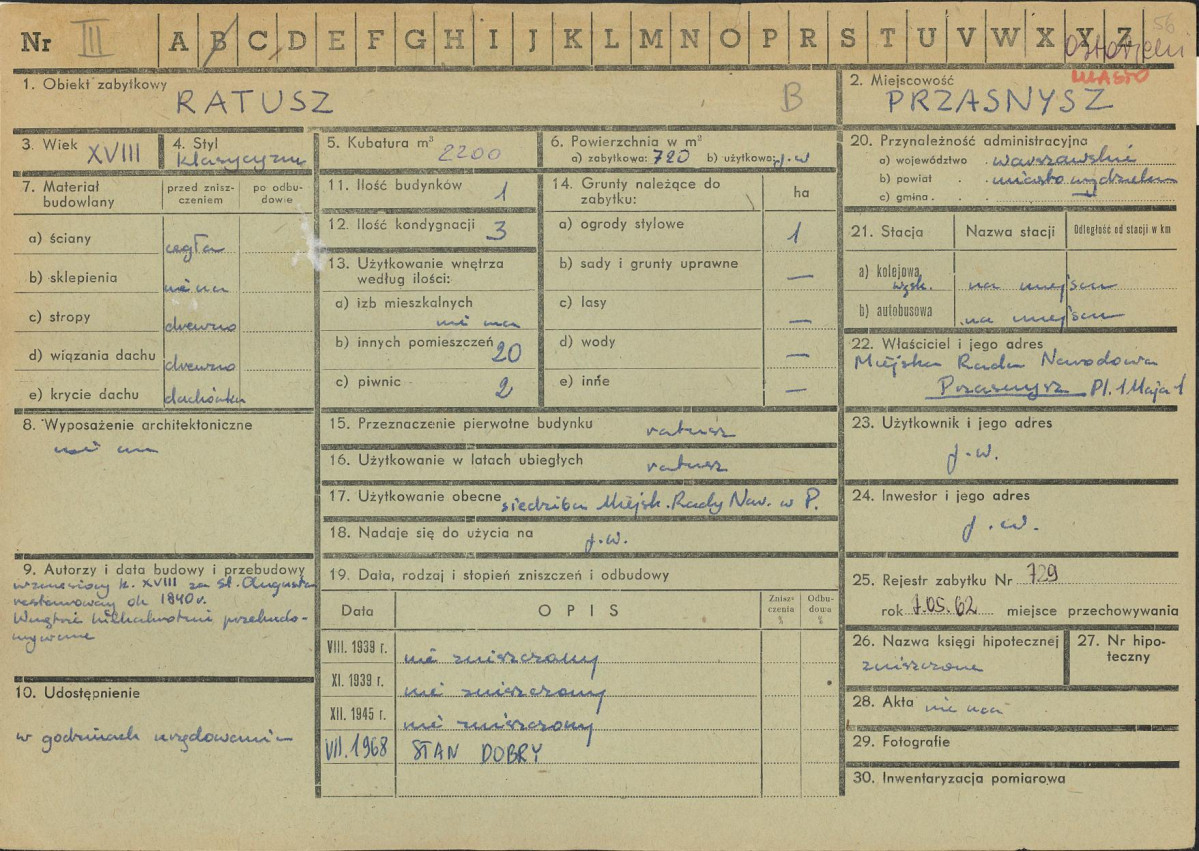 Nr III A B C D E F G H I J K L M N O P R S T U V W X Y Z 56
Ostrołęcki
MIASTO
1. Obiekt zabytkowy RATUSZ B
2. Miejscowość PRZASNYSZ
3. Wiek XVIII
4. Styl klasycyzm
5. Kubatura m³ 2200
6. Powierzchnia w m²
a) zabytkowa: 720 b) użytkowa: j.w
7. Materiał budowlany
przed zniszczeniem
po odbudowie
a) ściany cegła
b) sklepienia nie ma
c) stropy drewno
d) wiązania dachu drewno
e) krycie dachu dachówka
8. Wyposażenie architektoniczne
nie ma
9. Autorzy i data budowy i przebudowy
wzniesiony k. XVIII za St. Augusta
restaurowany ok 1840 r.
Wnętrze kilkakrotnie przebudo-
wywane
10. Udostępnienie
w godzinach urzędowania
11. Ilość budynków 1
12. Ilość kondygnacji 3
13. Użytkowanie wnętrza
według ilości:
a) izb mieszkalnych
nie ma
b) innych pomieszczeń 20
c) piwnic 2
14. Grunty należące do
zabytku:
ha
a) ogrody stylowe 1
b) sady i grunty uprawne —
c) lasy —
d) wody —
e) inne —
15. Przeznaczenie pierwotne budynku ratusz
16. Użytkowanie w latach ubiegłych ratusz
17. Użytkowanie obecne siedziba Miejsk. Rady Nar. w P.
18. Nadaje się do użycia na j.w.
19. Data, rodzaj i stopień zniszczeń i odbudowy
Data OPIS Zniszczenia % Odbudowa %
VIII. 1939 r. nie zniszczony
XI. 1939 r. nie zniszczony
XII. 1945 r. nie zniszczony
VII. 1968 STAN DOBRY
20. Przynależność administracyjna
a) województwo warszawskie
b) powiat miasto wydzielon
c) gmina
21. Stacja Nazwa stacji Odległość od stacji w km
a) kolejowa wąsk. na miejscu
b) autobusowa na miejscu
22. Właściciel i jego adres
Miejska Rada Narodowa
Przasnysz Pl. 1 Maja 1
23. Użytkownik i jego adres
j.w.
24. Inwestor i jego adres
j.w.
25. Rejestr zabytku Nr 729
rok 1.05.62 miejsce przechowywania
26. Nazwa księgi hipotecznej
zniszczone
27. Nr hipo-
teczny
28. Akta nie ma
29. Fotografie
30. Inwentaryzacja pomiarowa